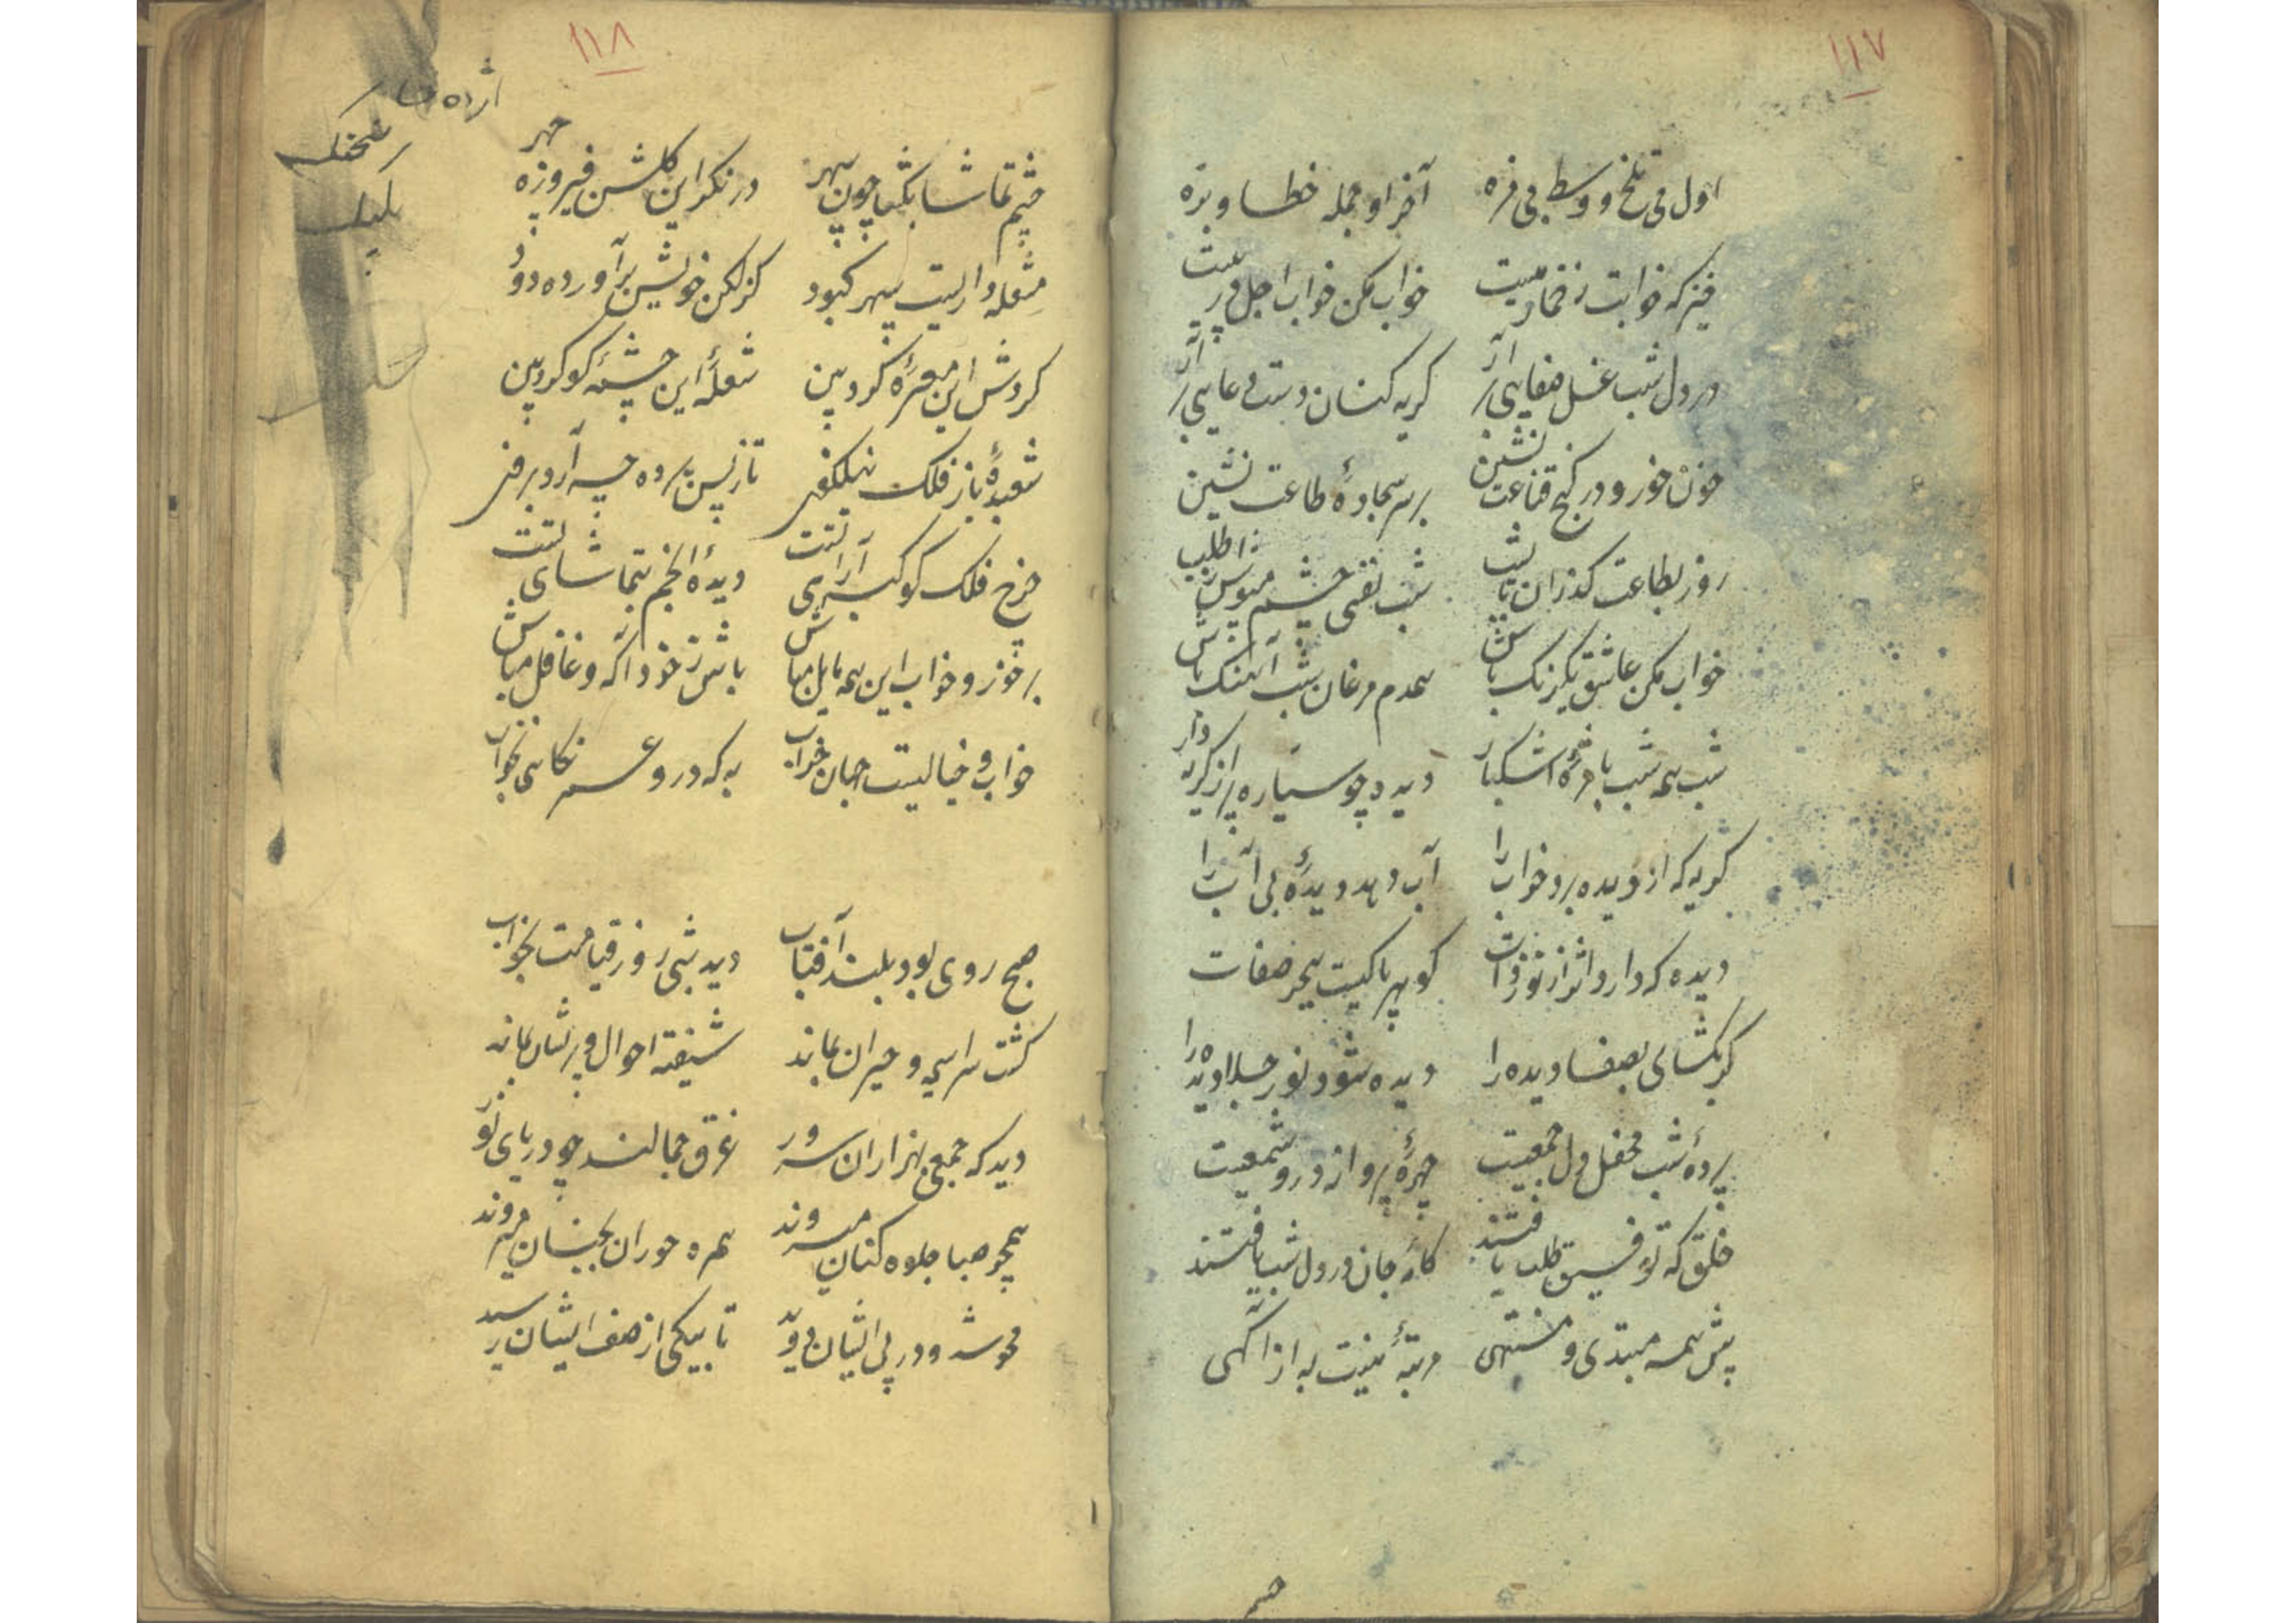 ۱۱۷
اول می تلخ و وسط بی مزه آخر او جمله خطا و بزه
خیز که خوابت ز خمار میست خواب مکن خواب اجل در پیست
در دل شب غسل صفایی برآر گریه کنان دست دعایی برآر
خون خور و در کنج قناعت نشین بر سر سجادهٔ طاعت نشین
روز بطاعت گذران تا شب نفسی چشم مپوش از طلب
خواب مکن عاشق یکرنگ باش همدم مرغان شب آهنگ باش
شب همه شب با مژهٔ اشکبار دیده چو سیاره پر از گریه دار
گریه که از دیده برد خواب را آب دهد دیدهٔ بی آب را
دیده که دارد اثر از نور ذات گوهر پاکیست ببحر صفات
گر بگشای بصفا دیده را دیده شود نور جلا دیده را
پردهٔ شب محفل دل جمعیت چهرهٔ پرواز درو شمعیت
خلق که توفیق طلب یافتند کام جان در دل شب یافتند
پیش همه مبتدی و منتهی مرتبهٔ نیست به از آگهی
۱۱۸
چشم تماشا بگشا چون سپهر در نگر این گلشن فیروزه چهر
مشعله داریست سپهر کبود کز لگن خویش برآورده دود
گردش این معرهٔ گرد بین شعلهٔ این چشمهٔ گوگرد بین
شعبدهٔ باز فلک تا ز پس پرده چه آرد برفن
چرخ فلک کوکبه آرای تست دیدهٔ انجم بتماشای تست
بر خور و خواب این همه مایل مباش باش ز خود آگه و غافل مباش
خواب و خیالیست جهان خراب به که درو عمر نکاهی بخواب
صبح روی بود بلند آفتاب دید شبی روز قیامت بخواب
گشت سراسیمه و حیران بماند شیفته احوال و پریشان بماند
دید که جمعی بهزاران سرور غرق جمالند چو دریای نور
همچو صبا جلوه کنان میروند همره حوران بجنان میروند
محو شد و در پی ایشان دوید تا بیکی از صف ایشان رسید